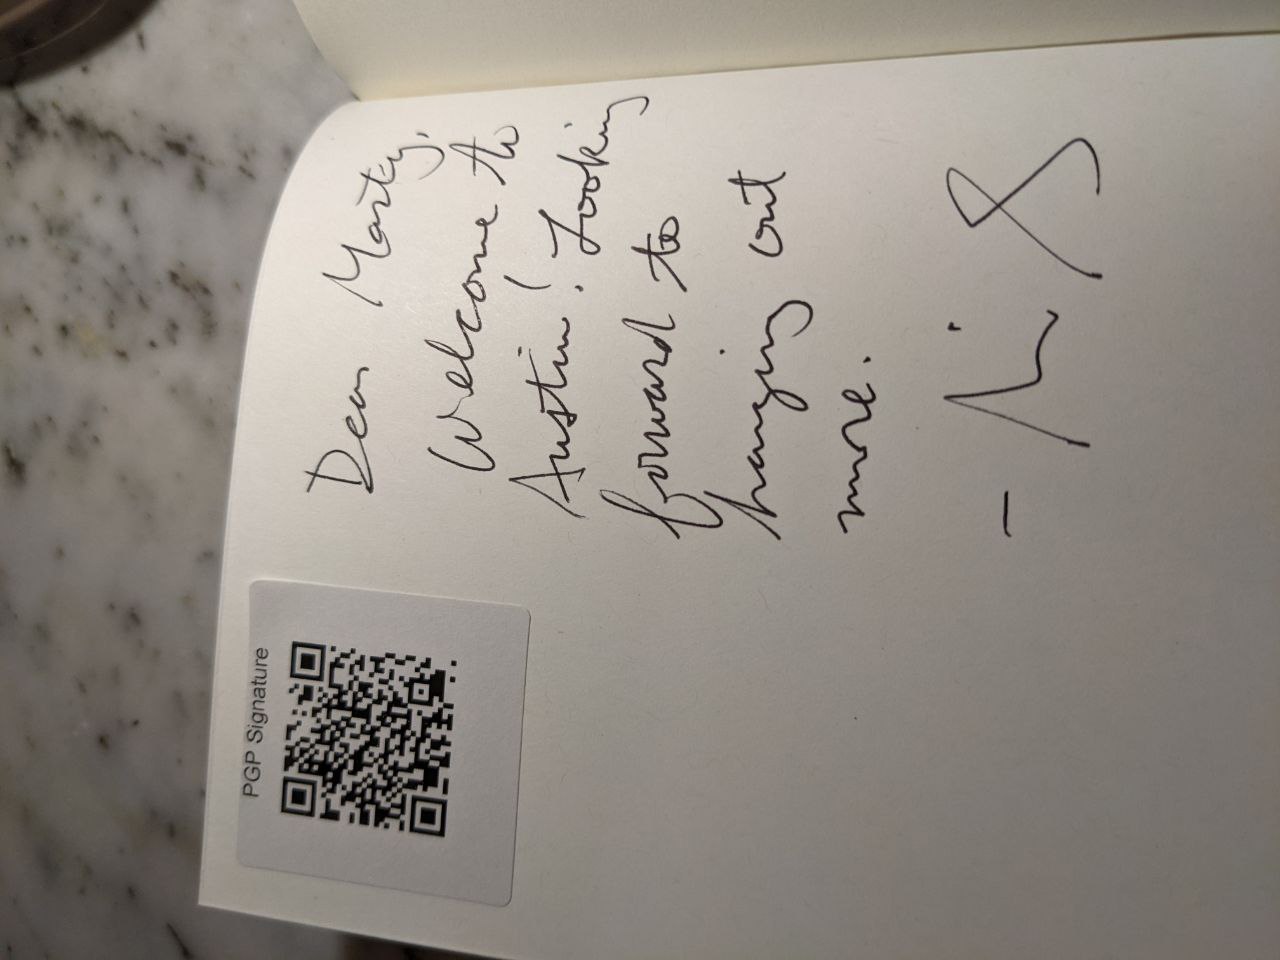 PGP Signature
Dear Marty,
Welcome to
Austin! Looking
forward to
hanging out
more.